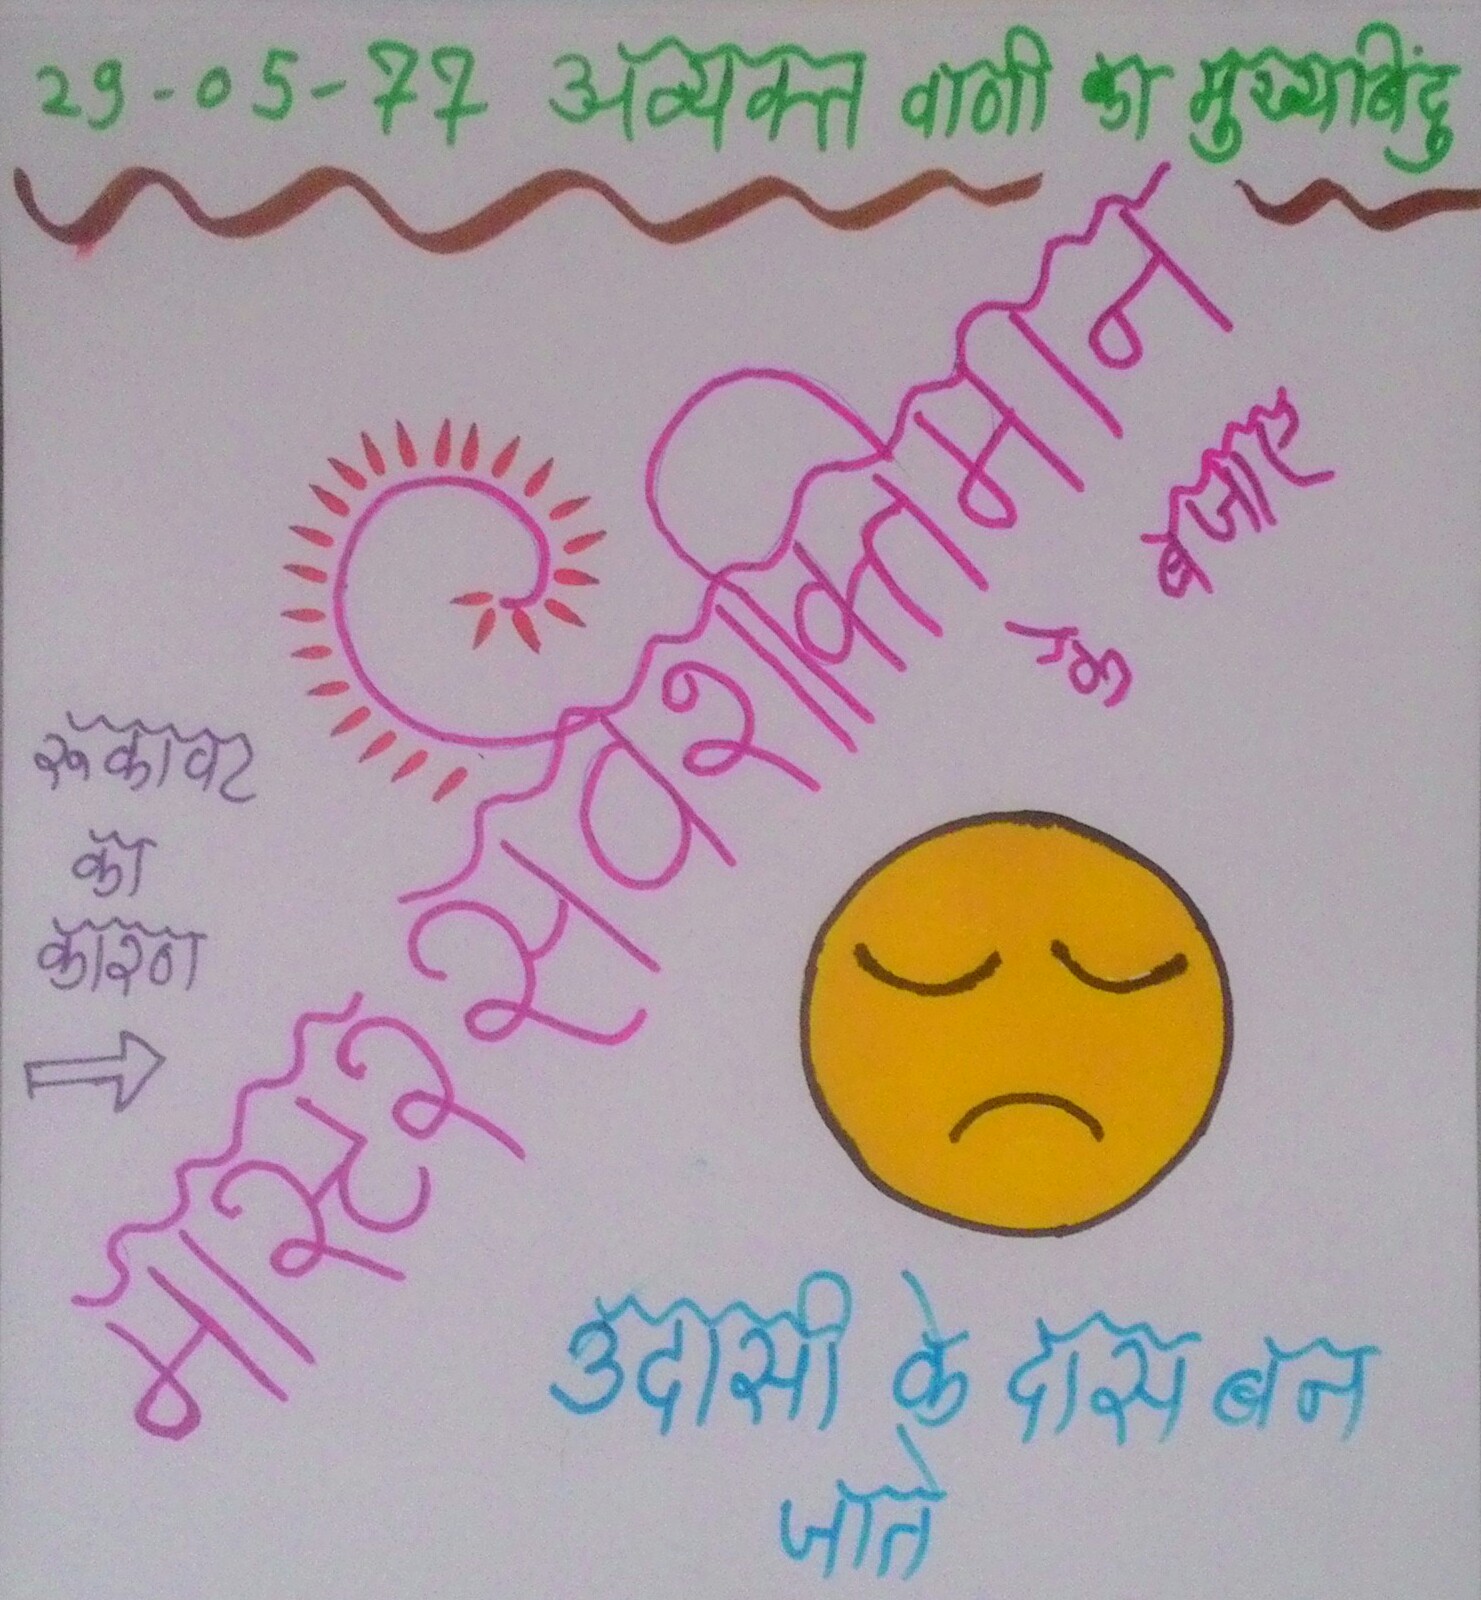 29-05-77 अव्यक्त वानी का मुख्यबिंदु
मास्टर सर्वशक्तिमान
के बजाए
रूकावट
का
कारन
उदासी के दास बन
जाते